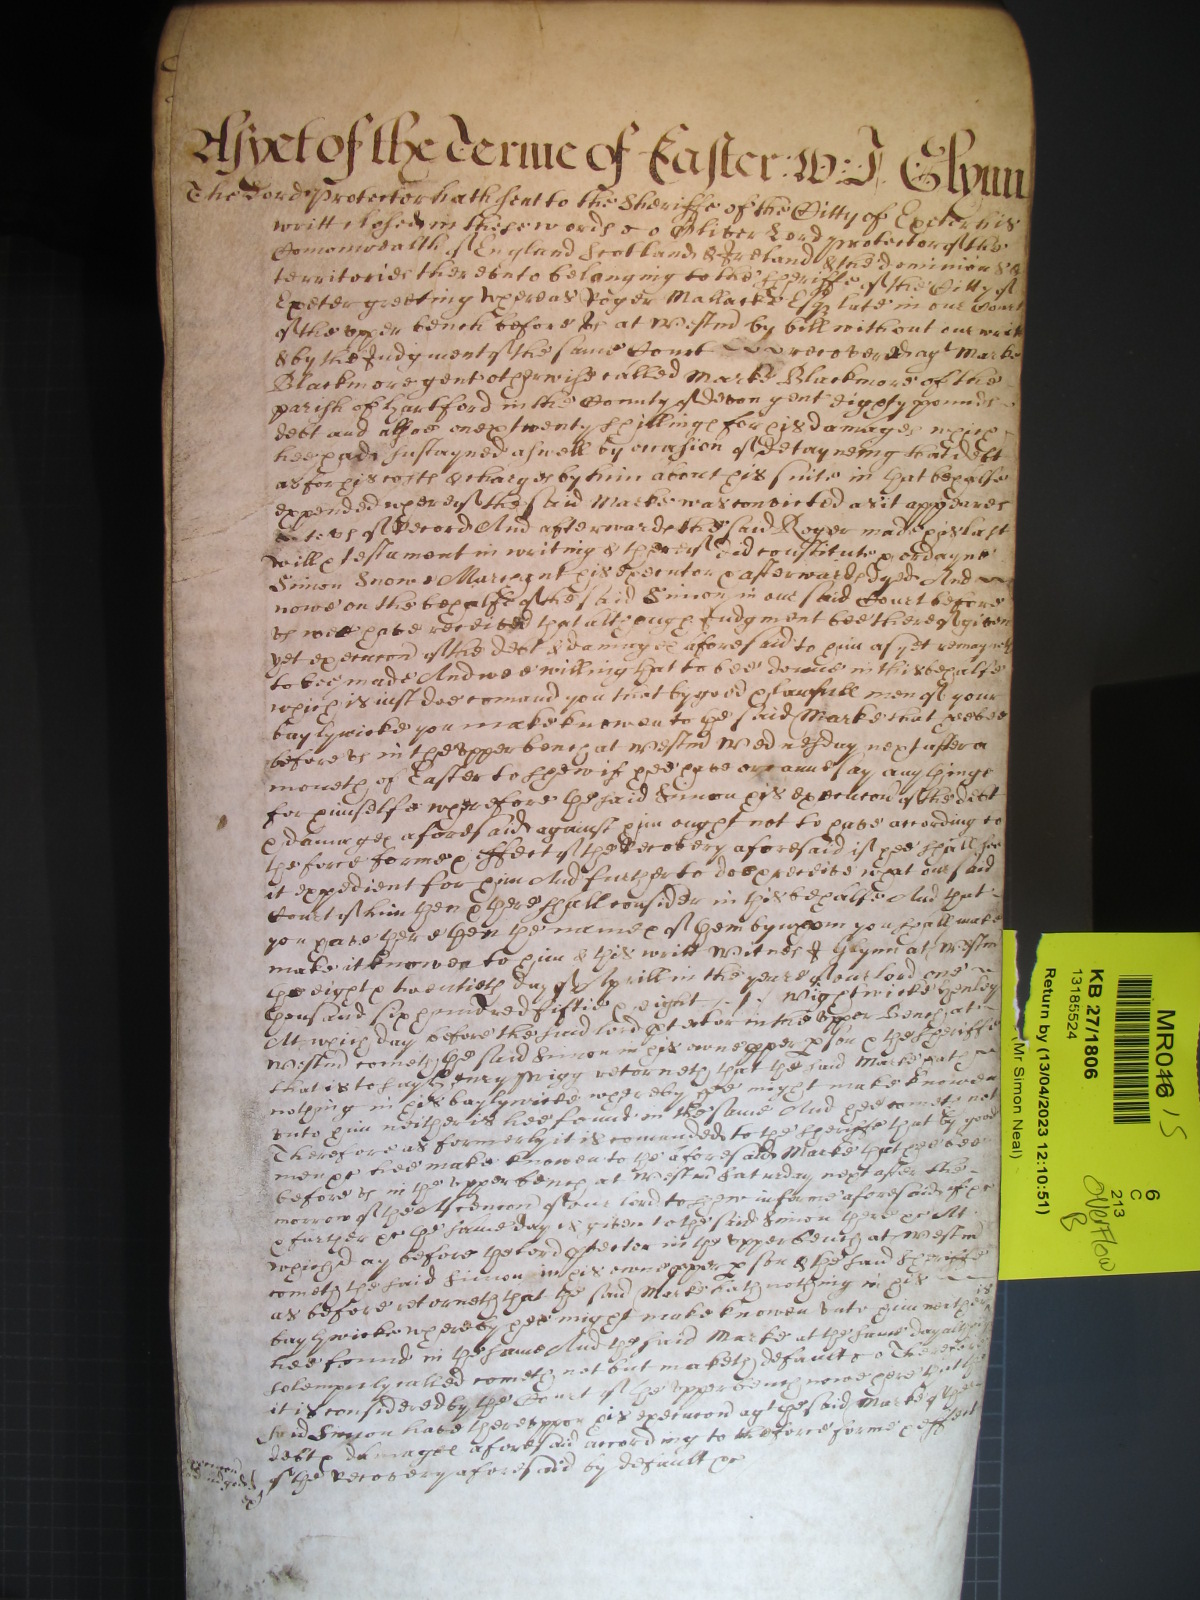 As yet of the Terme of Easter W: J Glynn
The Lord Protector hath sent to the Sheriffe of the Citty of Exeter his
writt closed in these words Oliver Lord Protector of the
Comonwealth of England Scotland & Ireland & the dominions &
territories thereunto belonging to the Sheriffe of the Citty of
Exeter greeting Whereas Roger Mallacke Esq late in our Court
of the upper bench before us at Westm by bill without our writt
& by the Judgment of the same Court recovered agt Marke
Blackmore gent otherwise called Marke Blackmore of the
parish of Hartford in the County of Devon gent eighty pounds
debt and alsoe one & twenty shillings for his damages which
hee had sustayned aswell by occasion of detayneing that debt
as for his costs & charges by him about his suite in that behalfe
expended whereof the said Marke was convicted as it appeares
to us of Record And afterwards the said Roger made his last
will & testament in writing & thereof did constitute & ordayne
Simon Snowe Marchant his executor & afterwards dyed And
nowe on the behalfe of the said Simon in our said Court before
us wee have received that although Judgment bee thereof given
yet execucon of the debt & damages aforesaid to him as yet remayneth
to bee made And wee willing that to bee donne in this behalfe
which is just doe comand you that by good & lawfull men of your
baylywicke you make knowen to the said Marke that hee bee
before us in the upper bench at Westm Wednesday next after a
moneth of Easter to shew if hee have or canne say any thinge
for himselfe wherefore the said Simon his execucon of the debt
& damages aforesaid against him ought not to have according to
the force forme & effect of the Recovery aforesaid if hee shall see
it expedient for him And further to doe & receive what our said
Court of him then & there shall consider in this behalfe And that
you have there then the names of them by whom you shall make
make it knowen to him & this writt Witnes J Glynn at Westm
the eight & twentieth day of Aprill in the yeare of our lord one
thousand six hundred fiftie & eight Wightwicke Henley
At which day before the said lord protector in the upper Bench at
Westm cometh the said Simon in his owne pper pson & the Sheriffe
that is to say Henry Prigg retorneth that the said Marke hath
nothing in his baylywicke whereby hee might make knowen
unto him neither is hee found in the same And hee cometh not
Therefore as formerly it is comanded to the Sheriffe that by good
men &c hee make knowen to the aforesaid Marke that hee bee
before us in the upper bench at Westm Saturday next after the
morrow of the Ascencon of our lord to shew in forme aforesaid if &c
& further &c the same day is given to the said Simon there &c At
which day before the lord protector in the upper bench at Westm
cometh the said Simon in his owne pper pson & the said Sheriffe
as before retorneth that the said Marke hath nothing in his
baylywicke whereby hee might make knowen unto him neither is
hee found in the same And the said Marke at the same day although
solempnely called cometh not but maketh default Therefore
it is considered by the Court of the upper bench nowe here that the
said Simon have thereuppon his execucon agt the said Marke of the
debt & damages aforesaid according to the force forme & effect
of the Recovery aforesaid by default &c
MR016 / 15
KB 27/1806
13185524
Return by (13/04/2023 12:10:51)
(Mr Simon Neal)
6
C
213
Overflow
B